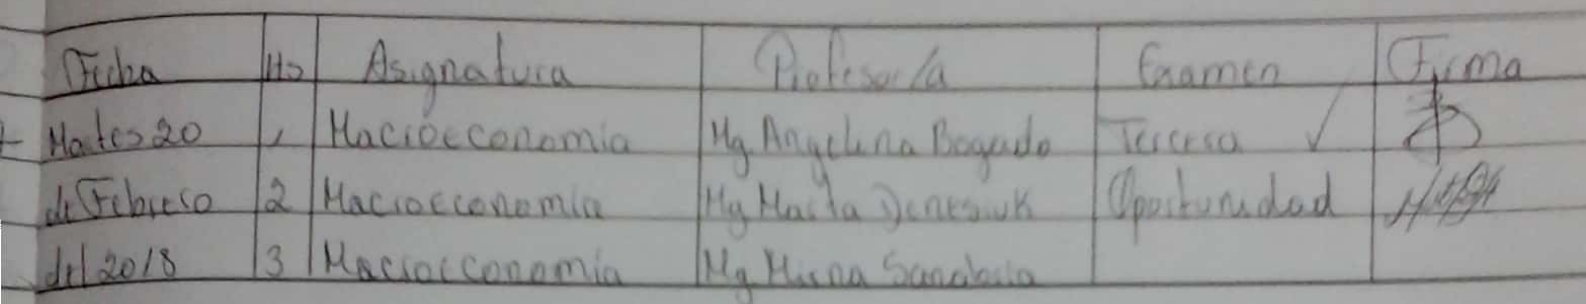 Fecha No Asignatura Profesor/a Examen Firma
Martes 20 1 Macroeconomia Mg Angelina Bogado Tercera ✓
de Febrero 2 Macroeconomia Mg Marta Oportunidad
del 2018 3 Macroeconomia Mg Mirna Sanabria